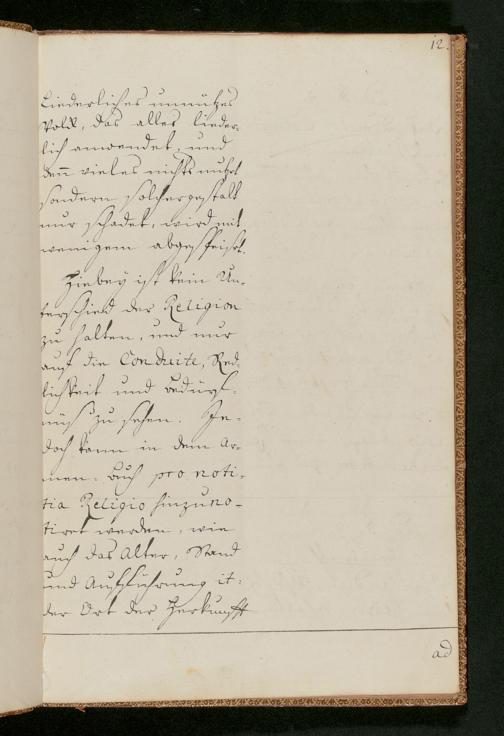 12.
Liederliches unnützes
Volck, das alles lieder-
lich anwendet, und
denn vieles nichts nutzet
sondern solchergestalt
nur schadet, wird mit
wenigem abgespeiset.
Hiebey ist kein Un-
terschied der Religion
zu halten, und nur
auf die Conduite, Red-
lichkeit und Bedürf-
nüß zu sehen. Je-
doch kann in dem Ar-
men-Buch pro noti-
tia Religio hinzuno-
tiret werden, wie
auch das Alter, Stand
und Aufführung it:
der Ort der Herkunfft
ad